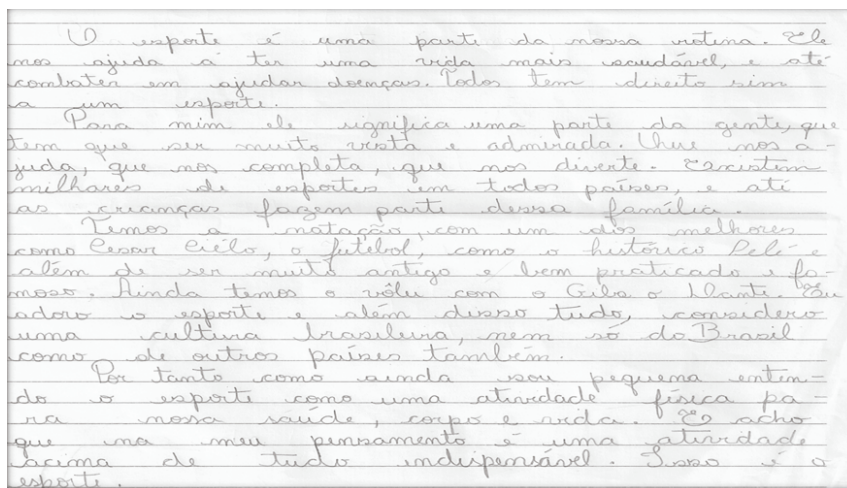 O esporte é uma parte da nossa rotina. Ele
nos ajuda a ter uma vida mais saudável, e até
combater em ajudar doenças. Todos tem direito sim
a um esporte.
Para mim ele significa uma parte da gente, que
tem que ser muito vista e admirada. Que nos a-
juda, que nos completa, que nos diverte. Existem
milhares de esportes em todos países, e até
as crianças fazem parte dessa família.
Temos a natação, com um dos melhores
como Cesar Cielo, o futebol, como o histórico Pelé e
além de ser muito antigo e bem praticado e fa-
moso. Ainda temos o vôlei com o Giba o Dante. Eu
adoro o esporte e além disso tudo, considero
uma cultura brasileira, nem só do Brasil
como de outros países também.
Por tanto como ainda sou pequena enten-
do o esporte como uma atividade física pa-
ra nossa saúde, corpo e vida. E acho
que na meu pensamento é uma atividade
acima de tudo indispensável. Isso é o
esporte.